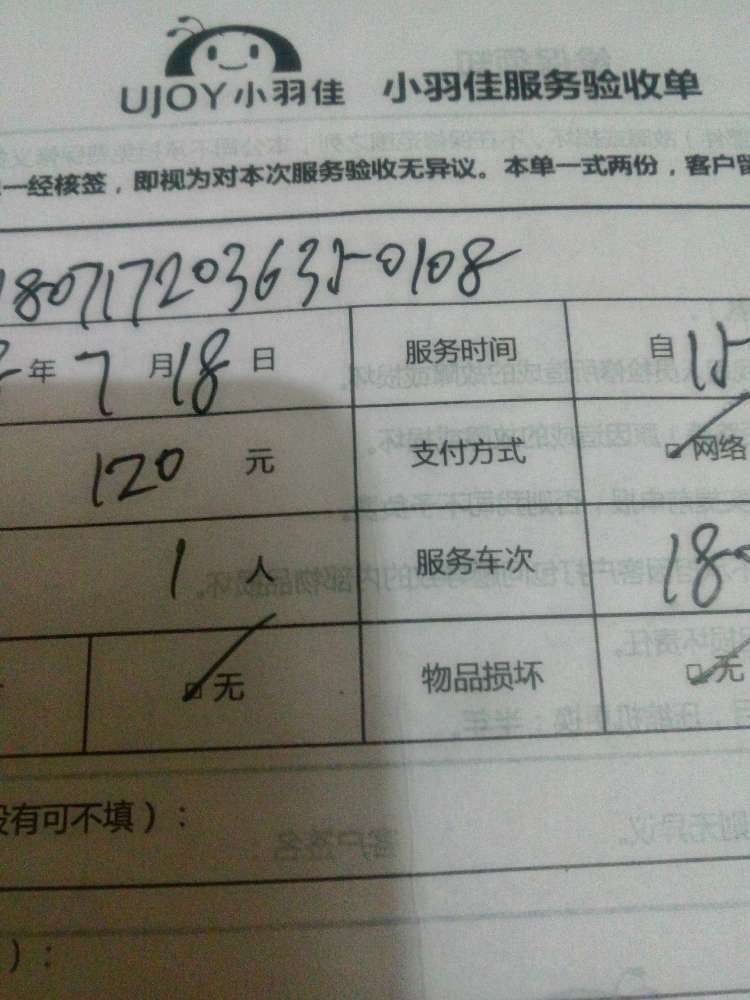 UJOY小羽佳 小羽佳服务验收单
一经核签，即视为对本次服务验收无异议。本单一式两份，客户留
180717203635-0108
年 7 月 18 日 服务时间 自 15
120 元 支付方式 网络
1 人 服务车次 18
无 物品损坏 无
没有可不填）：
）：